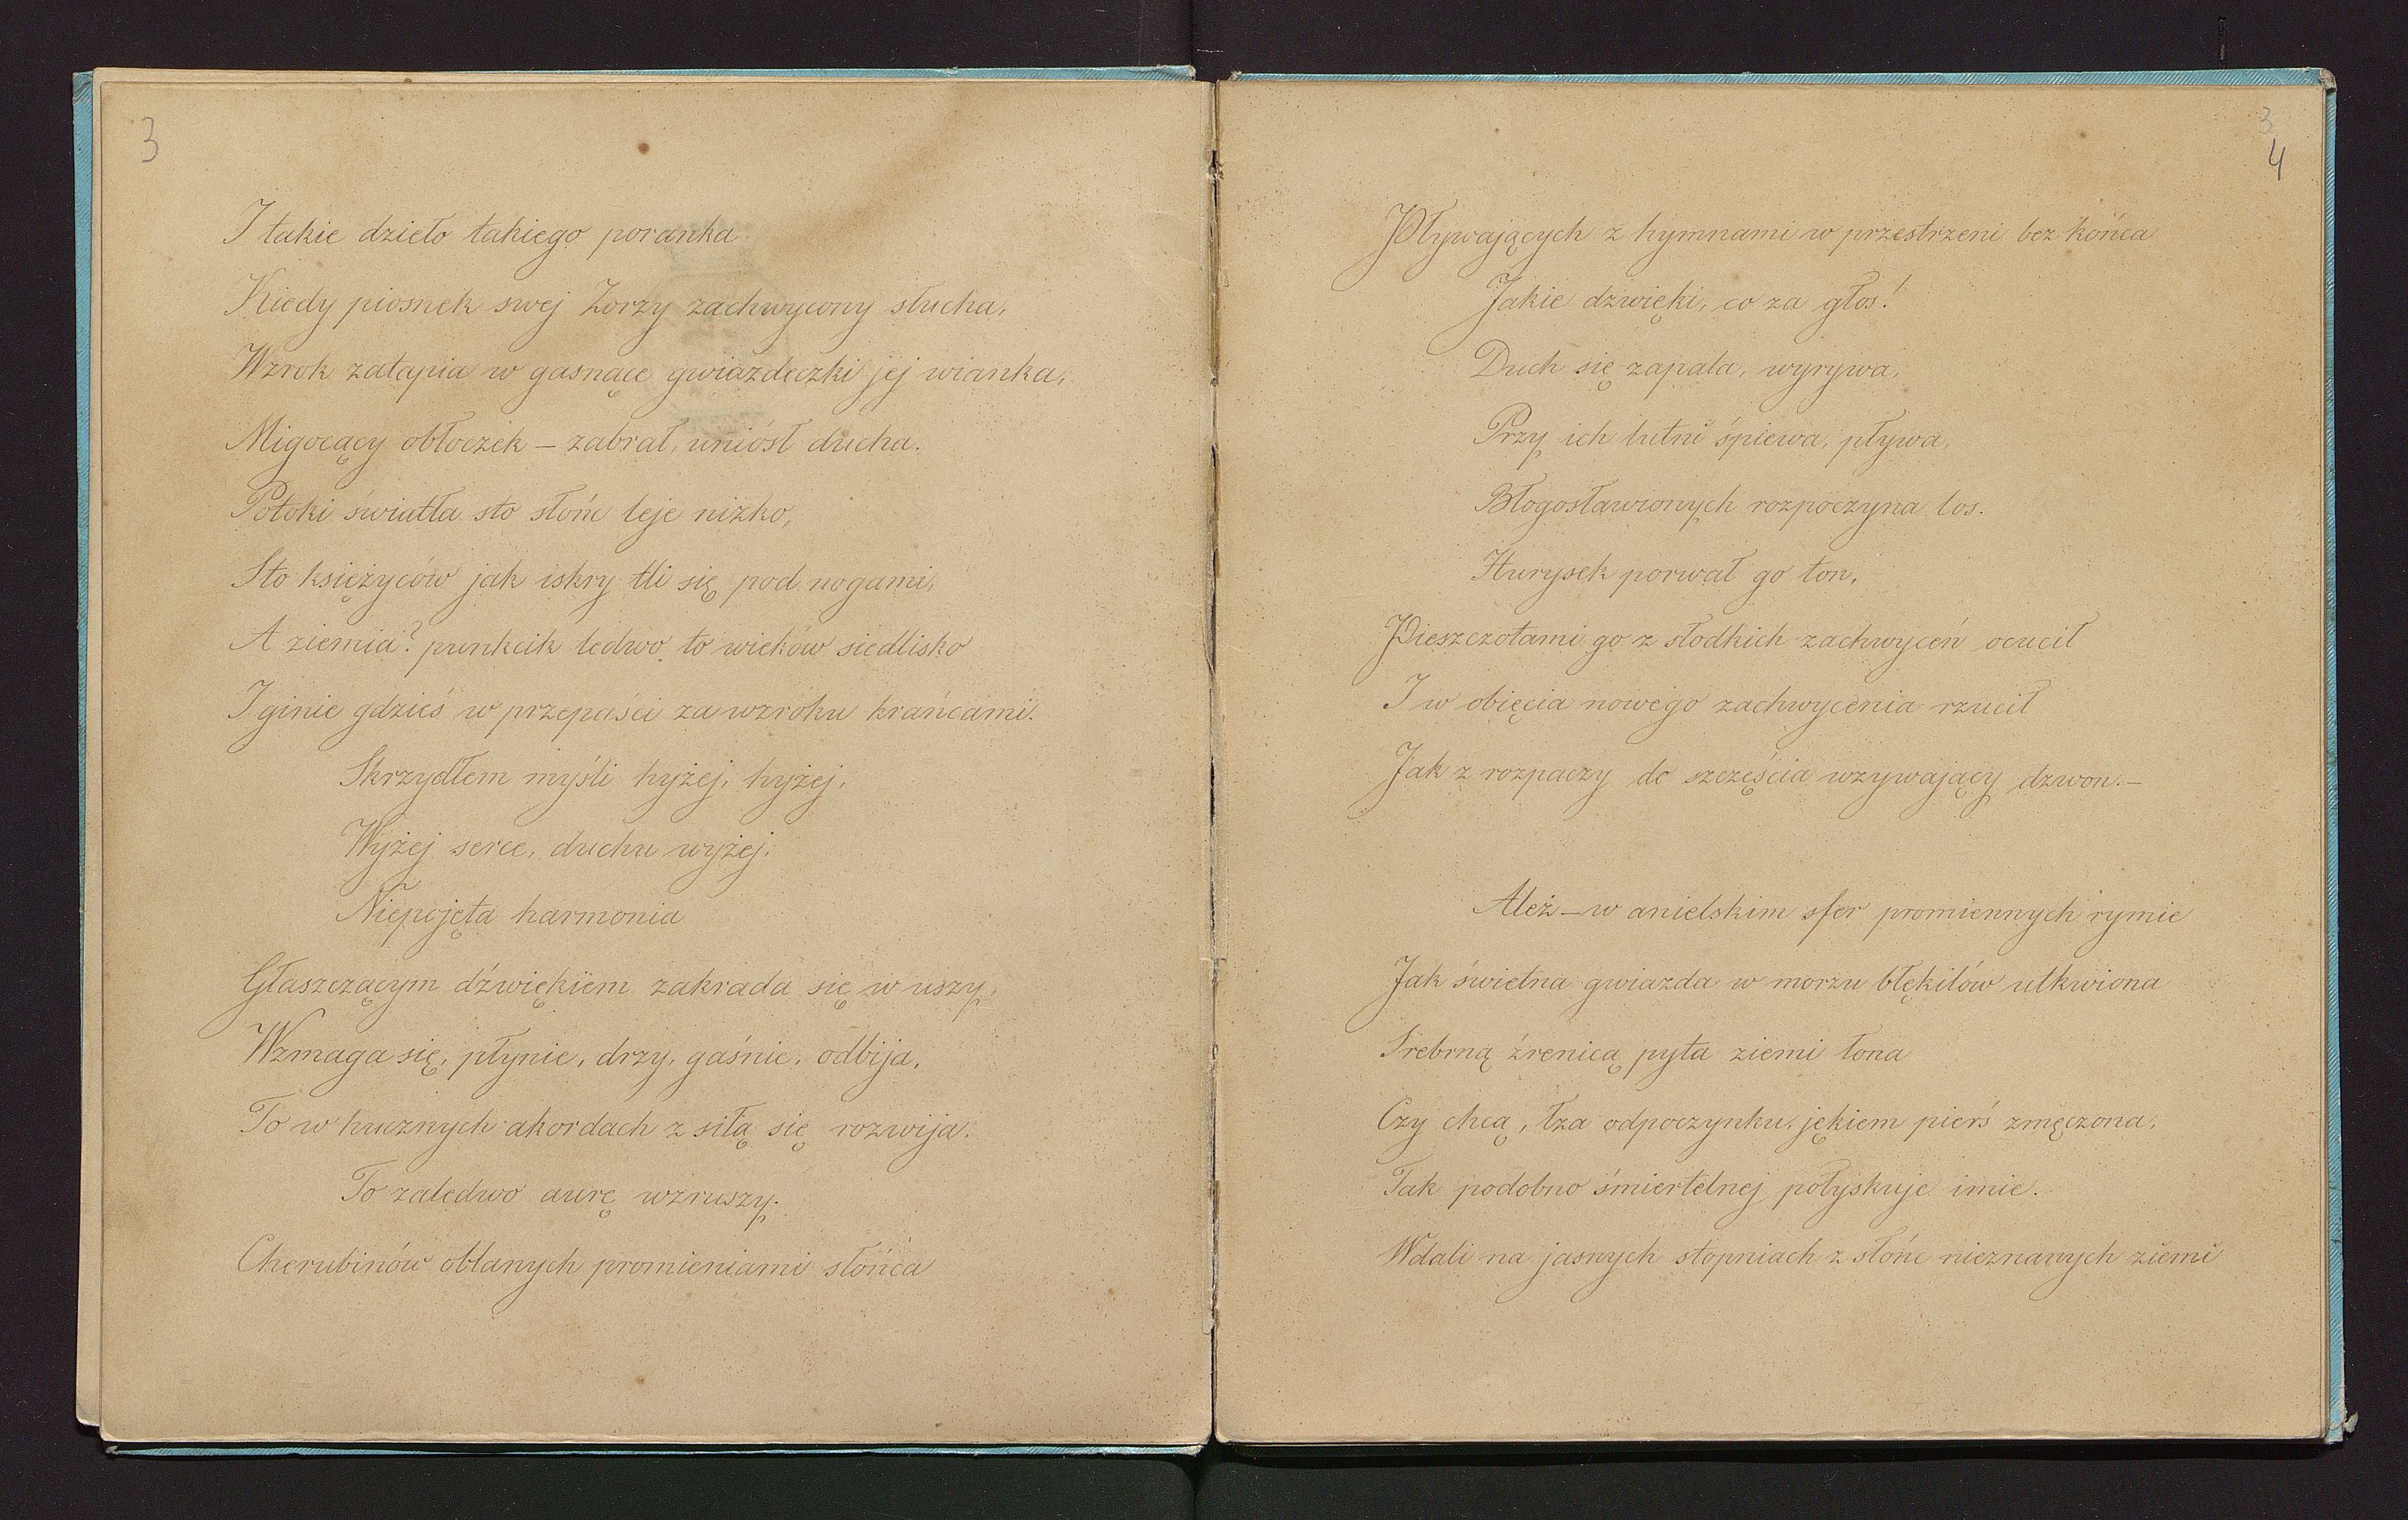 3
I takie dzieło takiego poranka
Kiedy piosnek swej Zorzy zachwycony słucha,
Wzrok zatapia w gasnące gwiazdeczki jej wianka,
Migocący obłoczek – zabrał, uniósł ducha.
Potoki światła sto słońc leje nizko,
Sto księżyców jak iskry tli się pod nogami,
A ziemia? punkcik ledwo to wieków siedlisko
I ginie gdzieś w przepaści za wzroku krańcami.
Skrzydłem myśli hyżej, hyżej,
Wyżej serce, duchu wyżej,
Niepojęta harmonia
Głaszczącym dźwiękiem zakrada się w uszy,
Wzmaga się, płynie, drzy, gaśnie, odbija,
To w hucznych akordach z siłą się rozwija.
To zaledwo aurę wzruszy.
Cherubinów oblanych promieniami słońca
3
4
Pływających z hymnami w przestrzeni bez końca
Jakie dzwięki, co za głos!
Duch się zapala, wyrywa,
Przy ich lutni śpiewa, pływa,
Błogosławionych rozpoczyna los.
Hurysek porwał go ton,
Pieszczotami go z słodkich zachwyceń ocucił
I w obięcia nowego zachwycenia rzucił
Jak z rozpaczy do szczęścia wzywający dzwon.–
Ależ – w anielskim sfer promiennych rymie
Jak świetna gwiazda w morzu błękitów utkwiona
Srebrną źrenicą pyta ziemi łona
Czy chcą, łza odpoczynku, jękiem pierś zmęczona,
Tak podobno śmiertelnej połyskuje imie.
Wdali na jasnych stopniach z słońc nieznanych ziemi